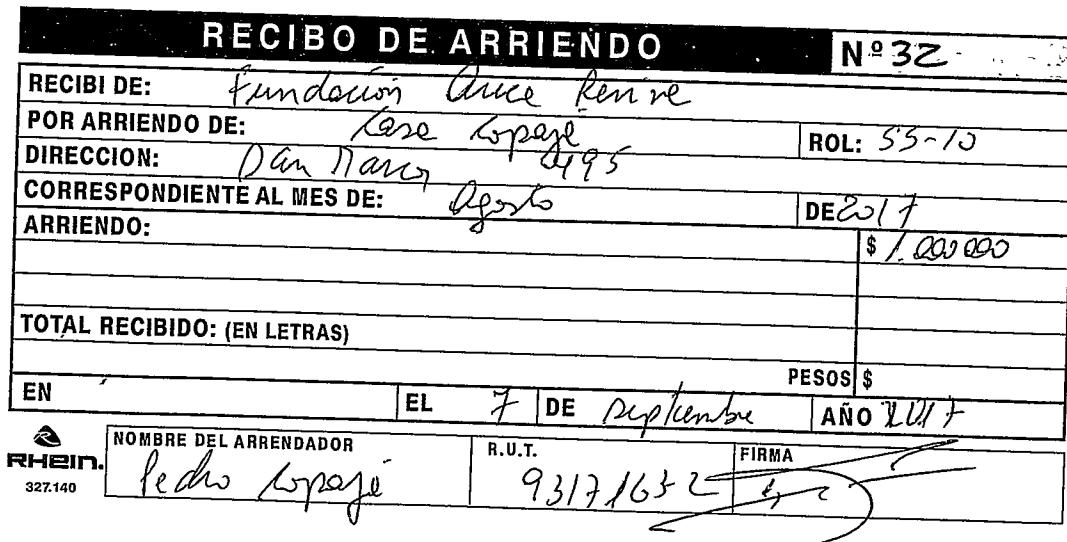 RECIBO DE ARRIENDO Nº 32
RECIBI DE: Fundación Cruce Revive
POR ARRIENDO DE: Casa Copajé ROL: 55-10
DIRECCION: San Marcos 495
CORRESPONDIENTE AL MES DE: Agosto DE 2017
ARRIENDO: $ 1.000 000
TOTAL RECIBIDO: (EN LETRAS)
PESOS $
EN EL 7 DE septiembre AÑO 2017
RHEIN. NOMBRE DEL ARRENDADOR R.U.T. FIRMA
327.140 Pedro Copajé